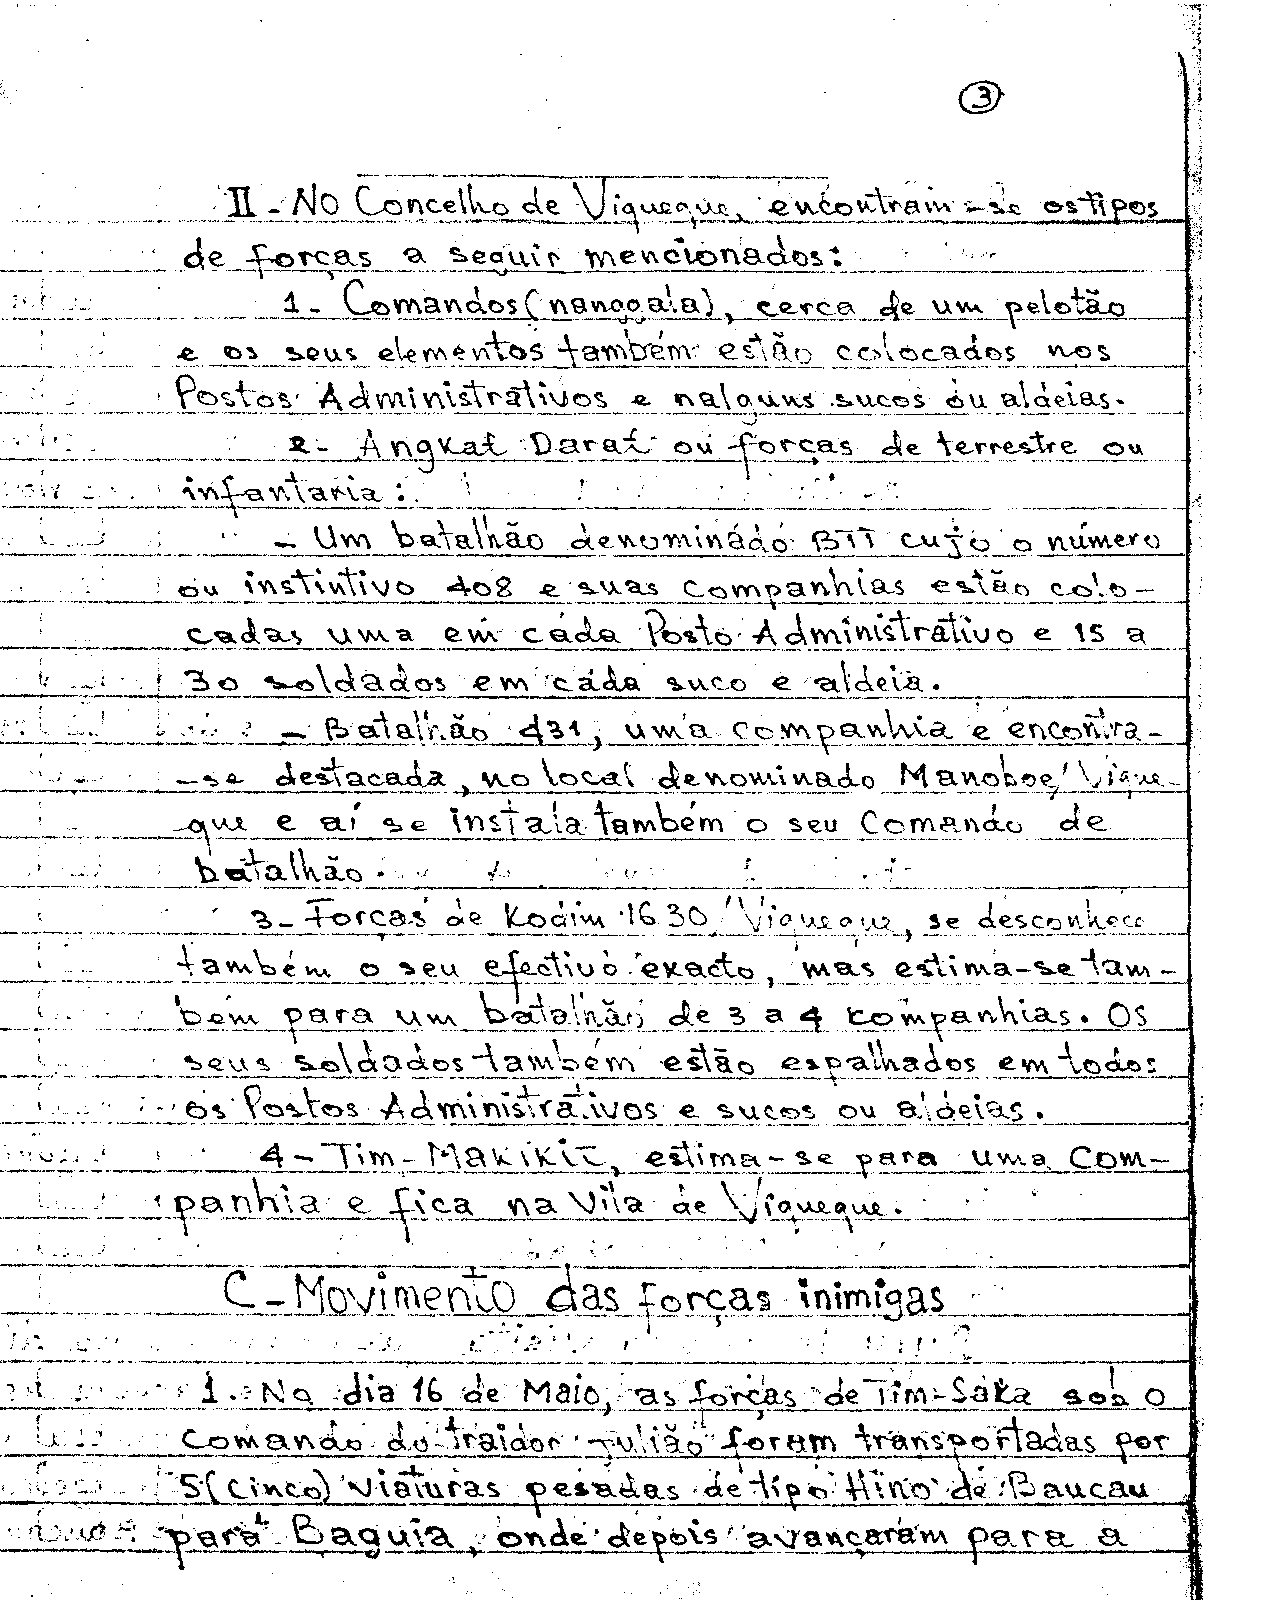 3
II - No Concelho de Viqueque, encontram-se os tipos
de forças a seguir mencionados:
1- Comandos (nanggala), cerca de um pelotão
e os seus elementos também estão colocados nos
Postos Administrativos e nalguns sucos ou aldeias.
2- Angkat Darat ou forças de terrestre ou
infantaria:
- Um batalhão denominado BTT cujo o número
ou instintivo 408 e suas companhias estão colo-
cadas uma em cada Posto Administrativo e 15 a
30 soldados em cada suco e aldeia.
- Batalhão 431, uma companhia e encontra-
-se destacada, no local denominado Manoboe, Vique-
que e aí se instala também o seu Comando de
batalhão.
3- Forças de Kodim 1630, Viqueque, se desconhece
também o seu efectivo exacto, mas estima-se tam-
bém para um batalhão de 3 a 4 companhias. Os
seus soldados também estão espalhados em todos
os Postos Administrativos e sucos ou aldeias.
4- Tim-Makikit, estima-se para uma com-
panhia e fica na Vila de Viqueque.
C - Movimento das forças inimigas
1. No dia 16 de Maio, as forças de Tim-Saka sob o
comando do traidor Julião foram transportadas por
5 (cinco) viaturas pesadas de tipo Hino de Baucau
para Baguia, onde depois avançaram para a